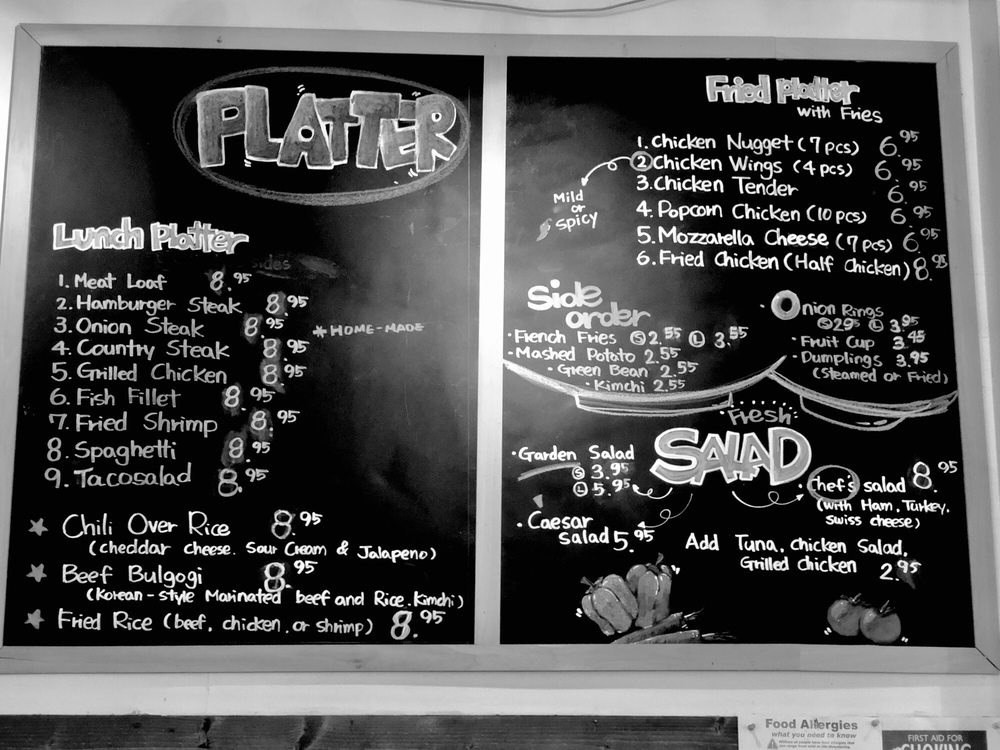 PLATTER
Lunch Platter
sides
1. Meat Loaf 8.95
2. Hamburger Steak 8.95
3. Onion Steak 8.95 *HOME-MADE
4. Country Steak 8.95
5. Grilled Chicken 8.95
6. Fish Fillet 8.95
7. Fried Shrimp 8.95
8. Spaghetti 8.95
9. Tacosalad 8.95
Chili Over Rice 8.95
(cheddar cheese. Sour Cream & Jalapeno)
Beef Bulgogi 8.95
(Korean-style Marinated beef and Rice. Kimchi)
Fried Rice (beef, chicken, or shrimp) 8.95
Fried Platter
with Fries
1. Chicken Nugget (7 pcs) 6.95
2 Chicken Wings (4 pcs) 6.95
3. Chicken Tender 6.95
4. Popcorn Chicken (10 pcs) 6.95
5. Mozzarella Cheese (7 pcs) 6.95
6. Fried Chicken (Half Chicken) 8.95
Mild
or
Spicy
Side
order
• French Fries S 2.55 L 3.55
• Mashed Potato 2.55
• Green Bean 2.55
• Kimchi 2.55
• Onion Rings
S 2.95 L 3.95
• Fruit Cup 3.45
• Dumplings 3.95
(Steamed or Fried)
Fresh
SALAD
• Garden Salad
S 3.95
L 5.95
• Caesar
Salad 5.95
• Chef's salad 8.95
(with Ham, Turkey,
Swiss cheese)
Add Tuna, Chicken Salad,
Grilled chicken 2.95
Food Allergies
what you need to know
FIRST AID FOR
CHOKING